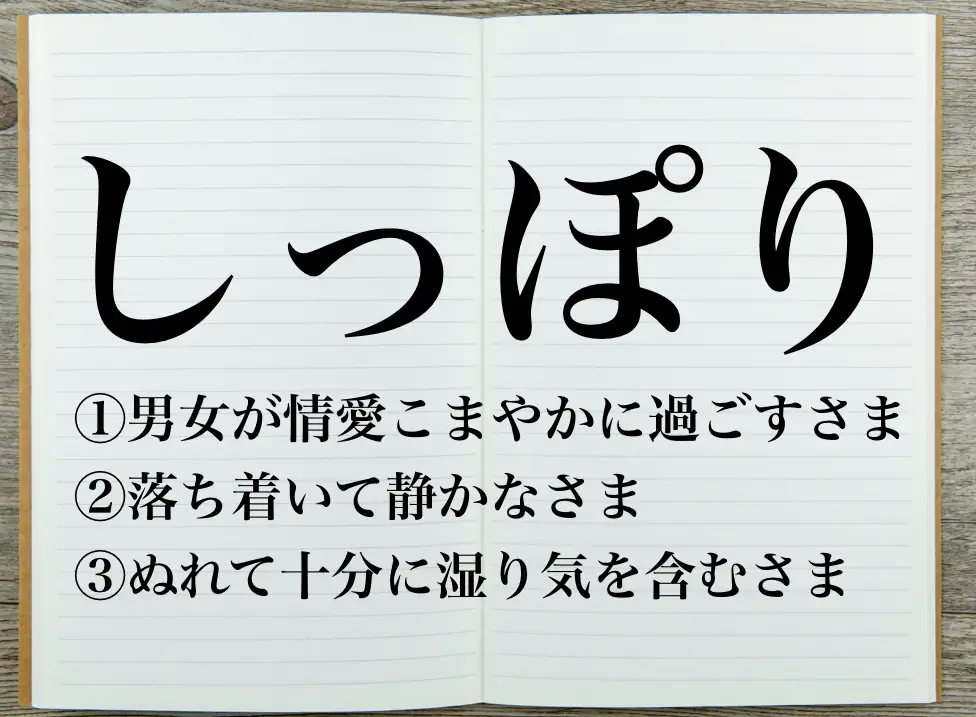 しっぽり
①男女が情愛こまやかに過ごすさま
②落ち着いて静かなさま
③ぬれて十分に湿り気を含むさま